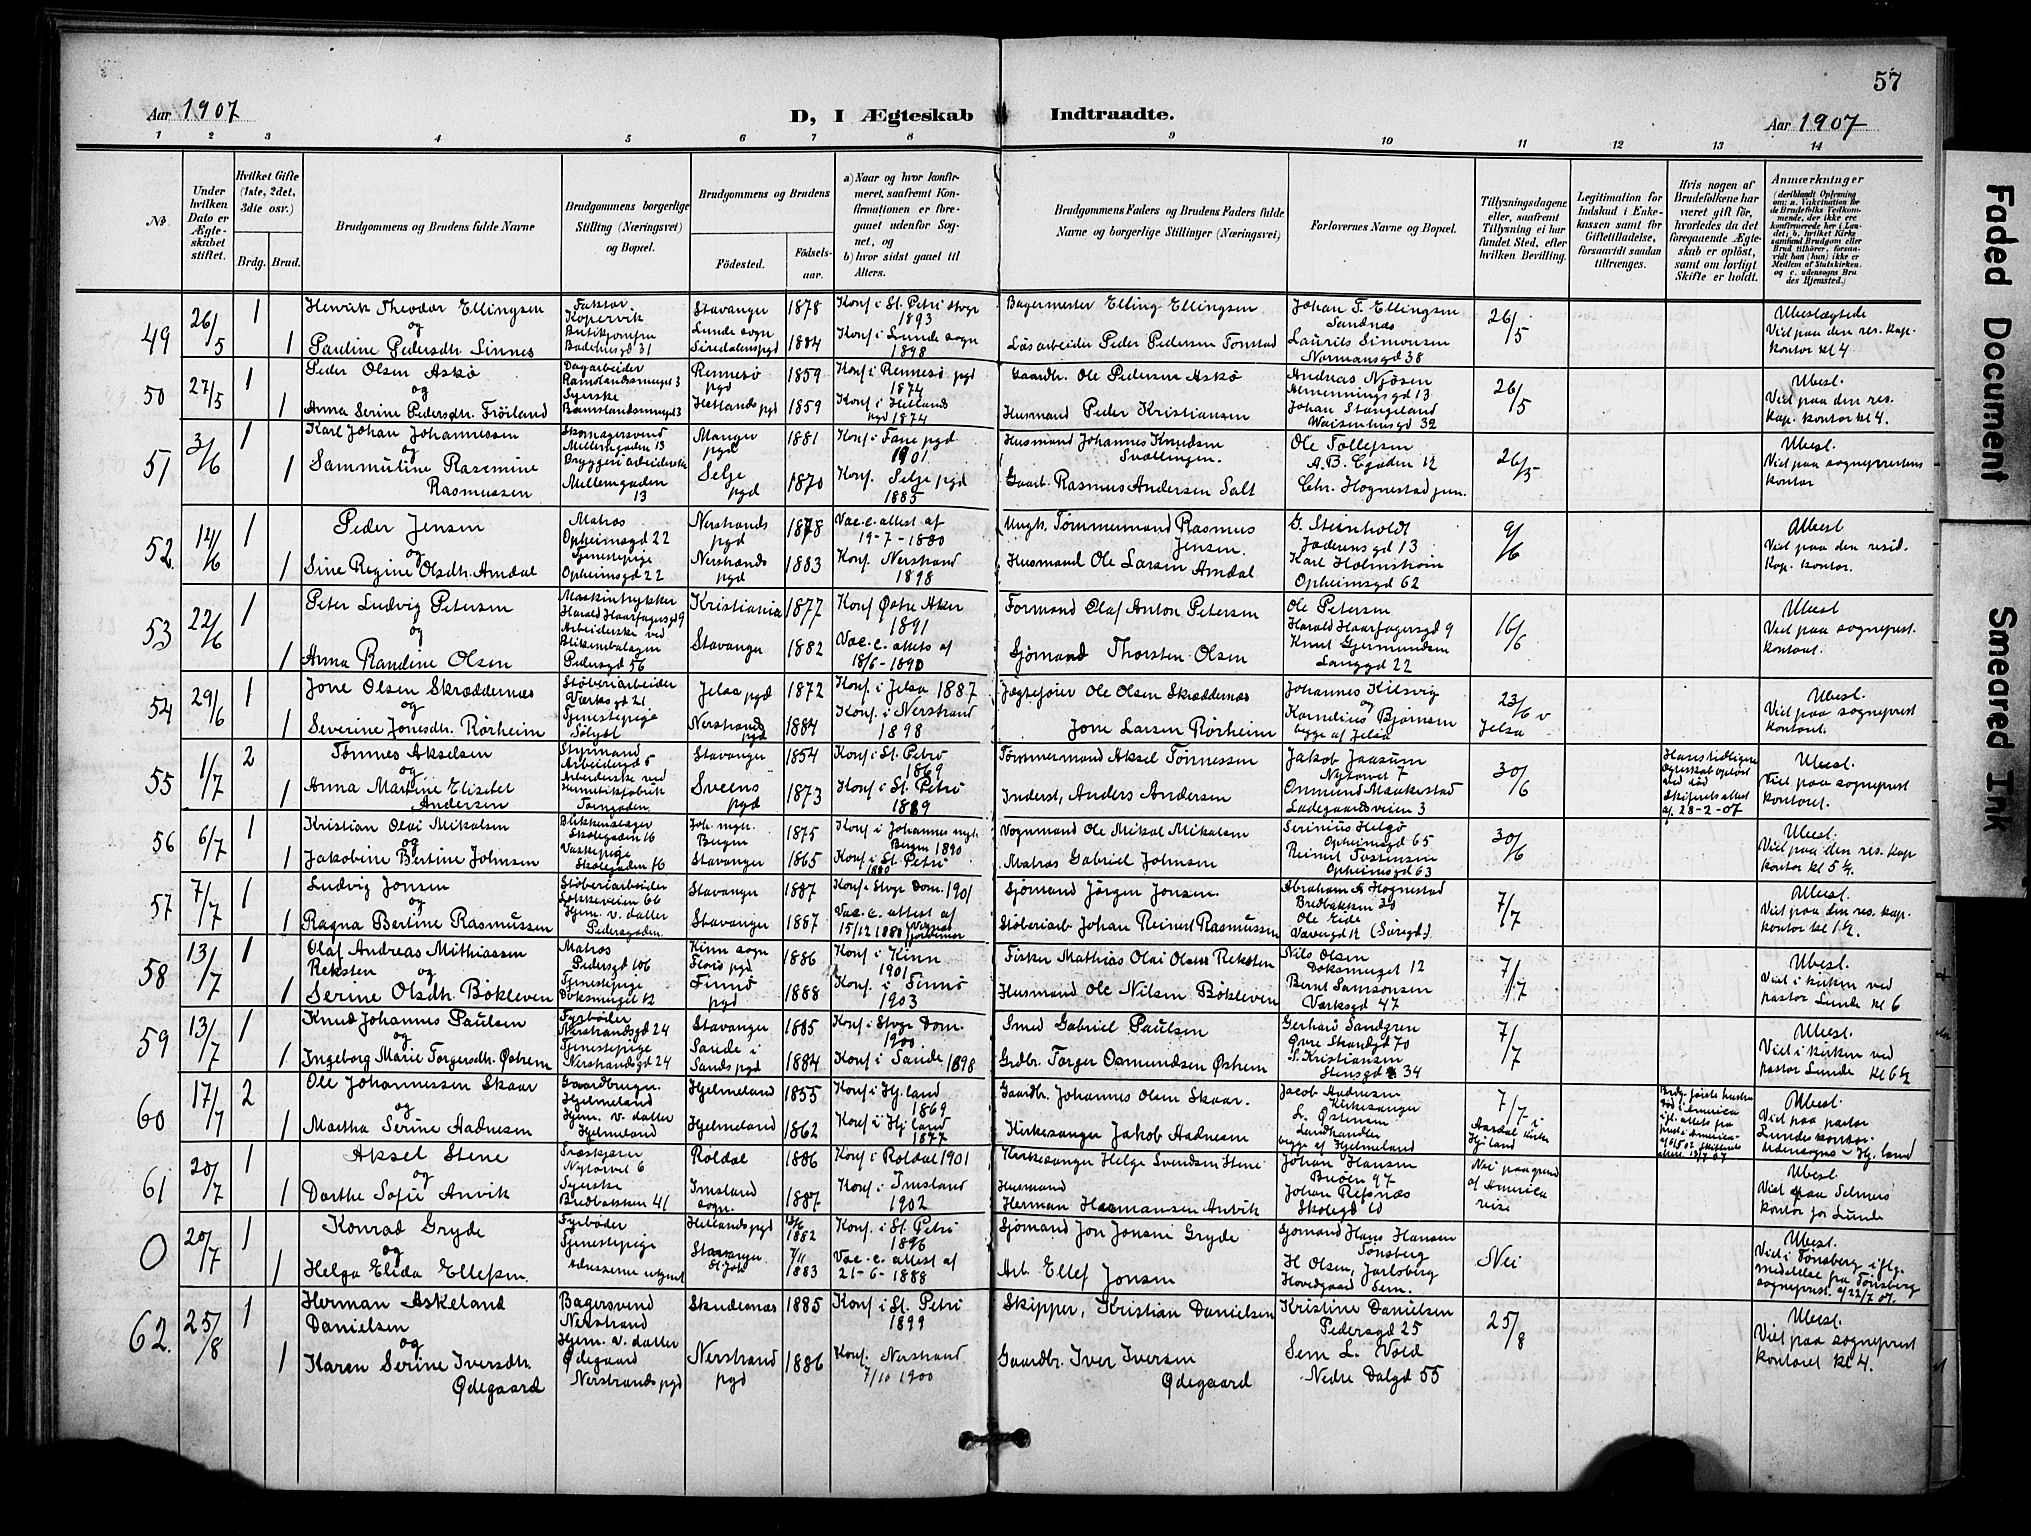 57
Aar 1907
D, I Ægteskab Indtraadte.
Aar 1907
1 2 3 4 5 6 7 8 9 10 11 12 13 14
No.
Under hvilken Dato er Ægteskabet stiftet.
Hvilket Gifte (1ste, 2det, 3die osv.)
Brdg. Brud.
Brudgommens og Brudens fulde Navne
Brudgommens borgerlige Stilling (Næringsvei) og Bopæl.
Brudgommens og Brudens
Fødested.
Fødselsaar.
a) Naar og hvor konfirmeret, saafremt Konfirmationen er foregaaet udenfor Sognet, og
b) hvor sidst gaaet til Alters.
Brudgommens Faders og Brudens Faders fulde Navne og borgerlige Stillinger (Næringsvei)
Forlovernes Navne og Bopæl.
Tillysningsdagene eller, saafremt Tillysning ei har fundet Sted, efter hvilken Bevilling.
Legitimation for Indskud i Enkekassen samt for Giftetilladelse, forsaavidt saadan tiltrænges.
Hvis nogen af Brudefolkene har været gift før, hvorledes da det foregaaende Ægteskab er opløst, samt om lovligt Skifte er holdt.
Anmærkninger
(deriblandt Oplysning om: a. Vakcination for de Brudefolks Vedkommende, der ikke ere konfirmerede her i Landet, b. hvilket Kirkesamfund Brudgom eller Brud tilhører, forsaavidt han (hun) ikke er Medlem af Statskirken og c. udensogns Brudes Hjemsted.)
49 26/5 1 Henrik Theodor Ellingsen Faktor Kopervik Stavanger 1878 Konf i St. Petri Stvgr 1893 Bagermester Elling Ellingsen Johan T. Ellingsen Sandnæs 26/5 Ubeslægtede
og
1 Pauline Pedersdtr. Sinnes Badehusgd 31 Lunde sogn Siredalens pgd 1884 Konf. i Lunde sogn 1898 Løsarbeider Peder Pedersen Tonstad Laurits Simonsen Normansgd 38 Viet paa den res. kap. kontor kl 4
50 27/5 1 Peder Olsen Askø Dagarbeider Rennesø pgd 1859 Konf i Rennesø pgd 1874 Gaardbr. Ole Pedersen Askø Andreas Njøsen 13 26/5 Ubesl.
og
1 Anna Serine Pedersdtr. Frøiland Syerske Hetlands pgd 1859 Konf. i Hetlands pgd 1874 Husmand Peder Kristiansen Johan Stangeland Waisenhusgd 32 Viet paa den res. kap. kontor kl 4.
51 3/6 1 Karl Johan Johannessen Skomagersvend Møllergaden 13 Manger pgd 1881 Konf i Fane pgd 1901. Husmand Johannes Knudsen Ole Tollefsen A.B.C gaden 12 26/5 Ubesl.
og
1 Sammuline Rasmine Rasmussen Bryggeriarbeiderske 13 Selje pgd 1870 Konf. Selje pgd 1885 Gaarb. Rasmus Andersen Salt Chr. Hognestad jun. Viet paa sogneprestens kontor
52. 12/6 1 Peder Jensen Matros Opheimsgd 22 Nerstrands pgd 1878 Vac.c. attest af 19-7-1880 Ungk. Tømmermand Rasmus Jensen. G. Steinholdt Jæderensgd 13 9/6 Ubesl
og
1 Sine Regine Olsdtr. Amdal Tjenestepige Opheimsgd 22 Nerstrands pgd 1883 Konf. Nerstrand 1898 Husmand Ole Larsen Amdal Karl Holmstrøm Opheimsgd 62 Viet paa den resid. Kap. kontor.
53 22/6 1 Peter Ludvig Petersen Maskintrykker Harald Haarfagersgd 9 Kristiania 1877 Konf Østre Aker 1891 Formand Olaf Anton Petersen Ole Petersen Harald Haarfagersgd 9 16/6 Ubesl
og
1 Anna Randine Olsen Arbeiderske ved Pedersgd 56 Stavanger 1882 Vac.c. attest af 18/6-1890 Sjømand Thorsten Olsen Knut Gjermundsen Langgd 22 Viet paa sogneprest. kontoret.
54 29/6 1 Jone Olsen Skræddernæs Støberiarbeider Værksgd 21 Jelsa pgd 1872 Konf. i Jelsa 1887 Jægtefører Ole Olsen Skræddernæs Johannes Kilsvig 23/6 v Jelsa Ubesl.
og
1 Severine Jonesdtr. Rørheim Tjenestepige Nerstrands pgd 1884 Konf. i Nerstrand 1898 Jone Larsen Rørheim og Kornelius Bjørnsen begge af Jelsa Viet paa sogneprest kontoret.
55 1/7 2 Tønnes Akselsen Styrmand Arbeidergd 5 Stavanger 1854 Konf i St. Petri 1869 Tømmermand Aksel Tønnessen Jakob Jaasum Nytorvet 7 30/6 Hans tidligere Ægteskab opløst ved død Skifteretsattest af. 28-2-07 Ubesl.
og
1 Anna Martine Elisabet Andersen Arbeiderske ved Hermetikfabrik Sveens pgd 1873 Konf i St. Petri 1889 Inderst, Anders Andersen Onmund Maakestad Ladegaardsveien 3 Viet paa sogneprest kontoret.
56 6/7 1 Kristian Olai Mikalsen Blikkenslager Skolegaden 16 Joh. mgh. Bergen 1875 Konf i Johannes mgh. Bergen 1890 Vognmand Ole Mikal Mikalsen Serinius Helgø Opheimsgd 65 30/6 Ubesl.
og
1 Jakobine Bertine Johnsen Vaskepige Skolegaden 16 Stavanger 1865 Konf i St. Petri 1880 Matros Gabriel Johnsen Reinert Tostensen Opheimsgd 63 Viet paa den res. kap kontor kl 5 ½.
57 7/7 1 Ludvig Jonsen Støberiarbeider Løkkeveien 66 Stavanger 1887 Konf i Stvgr Dom. 1901 Sjømand Jørgen Jonsen. Abraham A Hognestad Bredbakken 30 7/7 Ubesl.
og
1 Ragna Bertine Rasmussen Hjem. v. datter Pedersgaden. Stavanger 1887 Vac.c. attest af 15/12 1888 Støberiarb. Johan Reinert Rasmussen Ole Eide Vævergd 12 Viet paa den res. kap. kontor kl 1 ½.
58 13/7 1 Olaf Andreas Mithiassen Reksten Matros Pedersgd 106 Kinn sogn Florø pgd 1886 Konf i Kinn 1901 Fisker Mathias Olai Olsen Reksten Nils Olsen Doksmuget 12 7/7 Ubesl.
og
1 Serine Olsdtr. Bøkleven Tjenestepige Doksmuget 12 Finnø pgd 1888 Konf. i Finnø 1903 Husmand Ole Nilsen Bøkleven Bernt Samsonsen Værksgd 47 Viet i kirken ved pastor Lunde kl 6
59 13/7 1 Knud Johannes Paulsen Fyrbøder Nerstrandsgd 24 Stavanger 1885 Konf i Stvgr Dom. 1900 Smed Gabriel Paulsen Gerhard Sandgren Øvre Strandgd 70 7/7 Ubesl.
og
1 Ingeborg Marie Torgersdtr. Østrem Tjenestepige Nerstrandsgd 24 Sande i Sands pgd 1884 Konf i Sande 1898 Grdbr. Torger Osmundsen Østrem S. Kristiansen Stensgd 34 Viet i kirken ved pastor Lunde kl 6 ½
60 17/7 2 Ole Johannessen Skaar Gaardbruger Hjelmeland Hjelmeland 1855 Konf i Hj.land 1869 Gaardbr. Johannes Olsen Skaar. Jacob Aadnesen Kirkesanger 7/7 i Aardal kirke Hj.land Ubesl.
og
1 Martha Serine Aadnesen Hjem. v. datter Hjelmeland Hjelmeland 1862 Konf i Hj.land 1877 Kirkesanger Jakob Aadnesen L. Østensen Landhandler begge af Hjelmeland Viet paa pastor Lundes kontor. Udensogns - Hj.land
61 20/7 1 Aksel Stene Nytorvet 6 Røldal 1886 Konf i Røldal 1901 Kirkesanger Helge Svendsen Stene Johan Hansen 97 Nei paa grund af America reise Ubesl
og
1 Dorthe Sofie Anvik Syerske Bredbakken 41 Imsland sogn. 1887 Konf i Imsland 1902 Husmand Herman Hermansen Anvik Johan Refsnæs Skolegd 10 Viet paa Selmers kontor for Lunde
0 20/7 1 Konrad Gryde Fyrbøder Hetlands pgd 1882 Konf. i St. Petri 1896 Sjømand Jon Jonsen Gryde Sjømand Hans Hansen Tønsberg Nei Ubesl.
og
1 Helga Elida Ellefsen Tjenestepige Stavanger St. Joh 7/11 1883 Vac.c. attest af 21-6-1888 Arb. Ellef Jonsen H Olsen, Jarlsberg Hovedgaard Sem. Viet i Tønsberg iflg. meddelelse fra Tønsberg sogneprest. af 22/7 07.
62. 25/8 1 Herman Askeland Danielsen Bagersvend Nerstrand Skudesnæs 1885 Konf i St. Petri 1899 Skipper, Kristian Danielsen Kristine Danielsen Pedersgd 25 25/8 Ubesl.
og
1 Karen Serine Iversdtr. Ødegaard Hjem. v. datter Ødegaard Nerstrands pgd Nerstrand pgd 1886 Konf. Nerstrand 7/10 1900 Gaardbr. Iver Iversen Ødegaard Sem L. Vold Nedre Dalgd 55 Viet paa sogneprest kontoret kl 4.
Faded Document
Smeared Ink